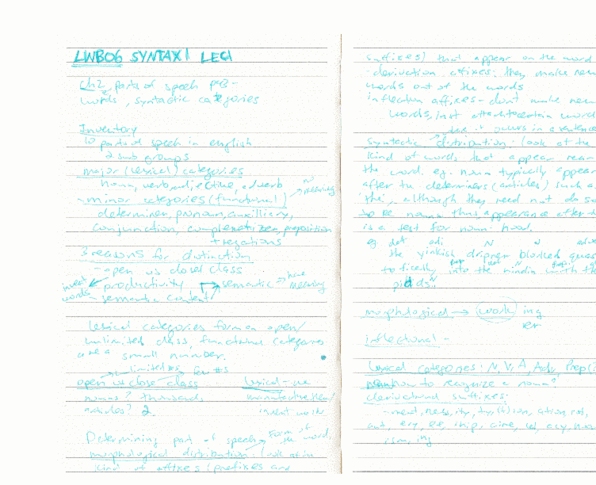 LWB06 SYNTAX LEC1
Ch2, parts of speech
words, syntactic categories
Inventory
10 parts of speech in english
2 sub groups
major (lexical) categories
noun, verb, adjective, adverb
minor categories (functional)
determiner, pronoun, auxilliary,
conjunction, complementizer, preposition
+ negations
3 reasons for distinction
- open vs closed class
productivity
semantic content
lexical categories form an open/
unlimited class, functional categories
are a small number.
open vs close class
nouns? thousands
articles? 2
Determining part of speech
morphological distribution: look at the
kind of affixes (prefixes and
suffixes) that appear on the word
derivation affixes: they make new
words out of the words
inflection affixes - don't make new
words, just attach to certain words
syntactic distribution - look at the
kind of words that appear near
the word. eg. nouns typically appear
after the determiners (articles) such as
the, although they need not do so
to be nouns thus, appearance after
is a test for noun hood.
eg det adj N
the yinkish dripner blorked
into the nindin with the
pidibs
morphological → work ing
er
inflectional -
Lexical categories: N, V, A, Adv, Prep
how to recognize a noun?
derivational suffixes: